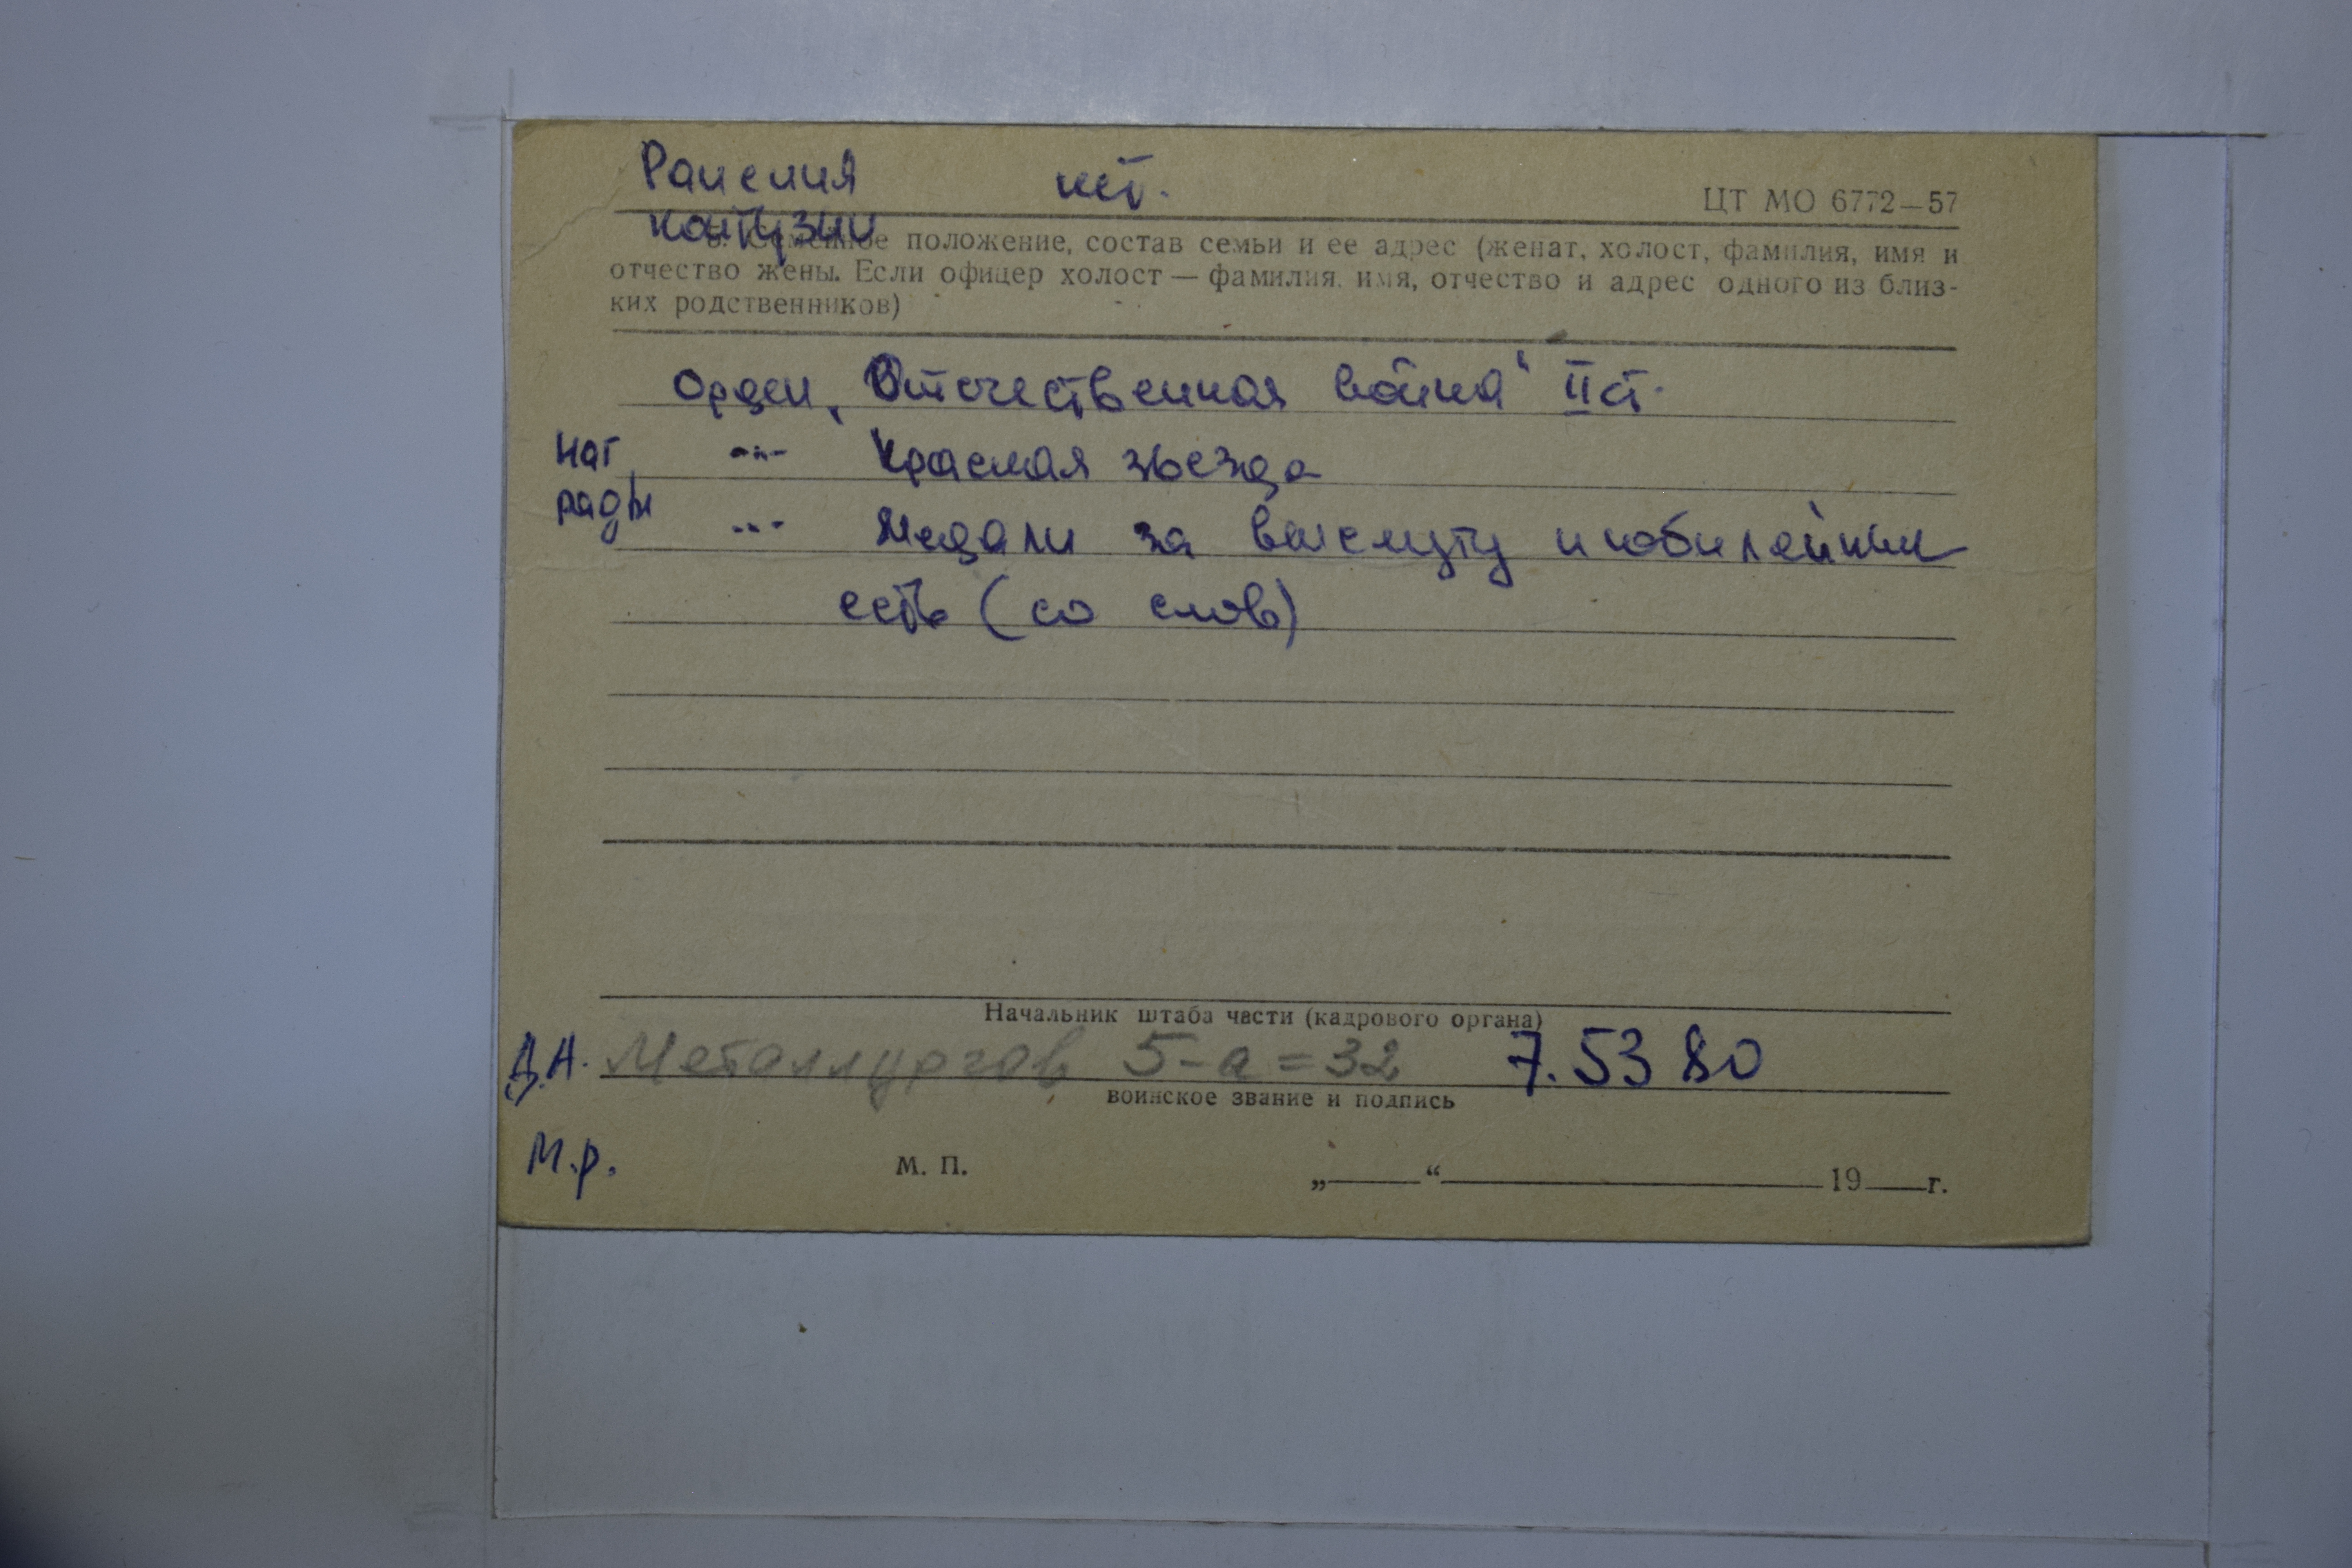 Ранения нет.
ЦТ МО 6772—57
контузии
8. Семейное положение, состав семьи и ее адрес (женат, холост, фамилия, имя и
отчество жены. Если офицер холост — фамилия, имя, отчество и адрес одного из близ-
ких родственников)
Орден „Отечественная война" II ст.
наг -"- Красная звезда
рады -"- Медали за выслугу и юбилейные
есть (со слов)
Начальник штаба части (кадрового органа)
Д.А. Металлургов 5-а=32 7.53 80
воинское звание и подпись
М.р. М. П. „ “ 19 г.